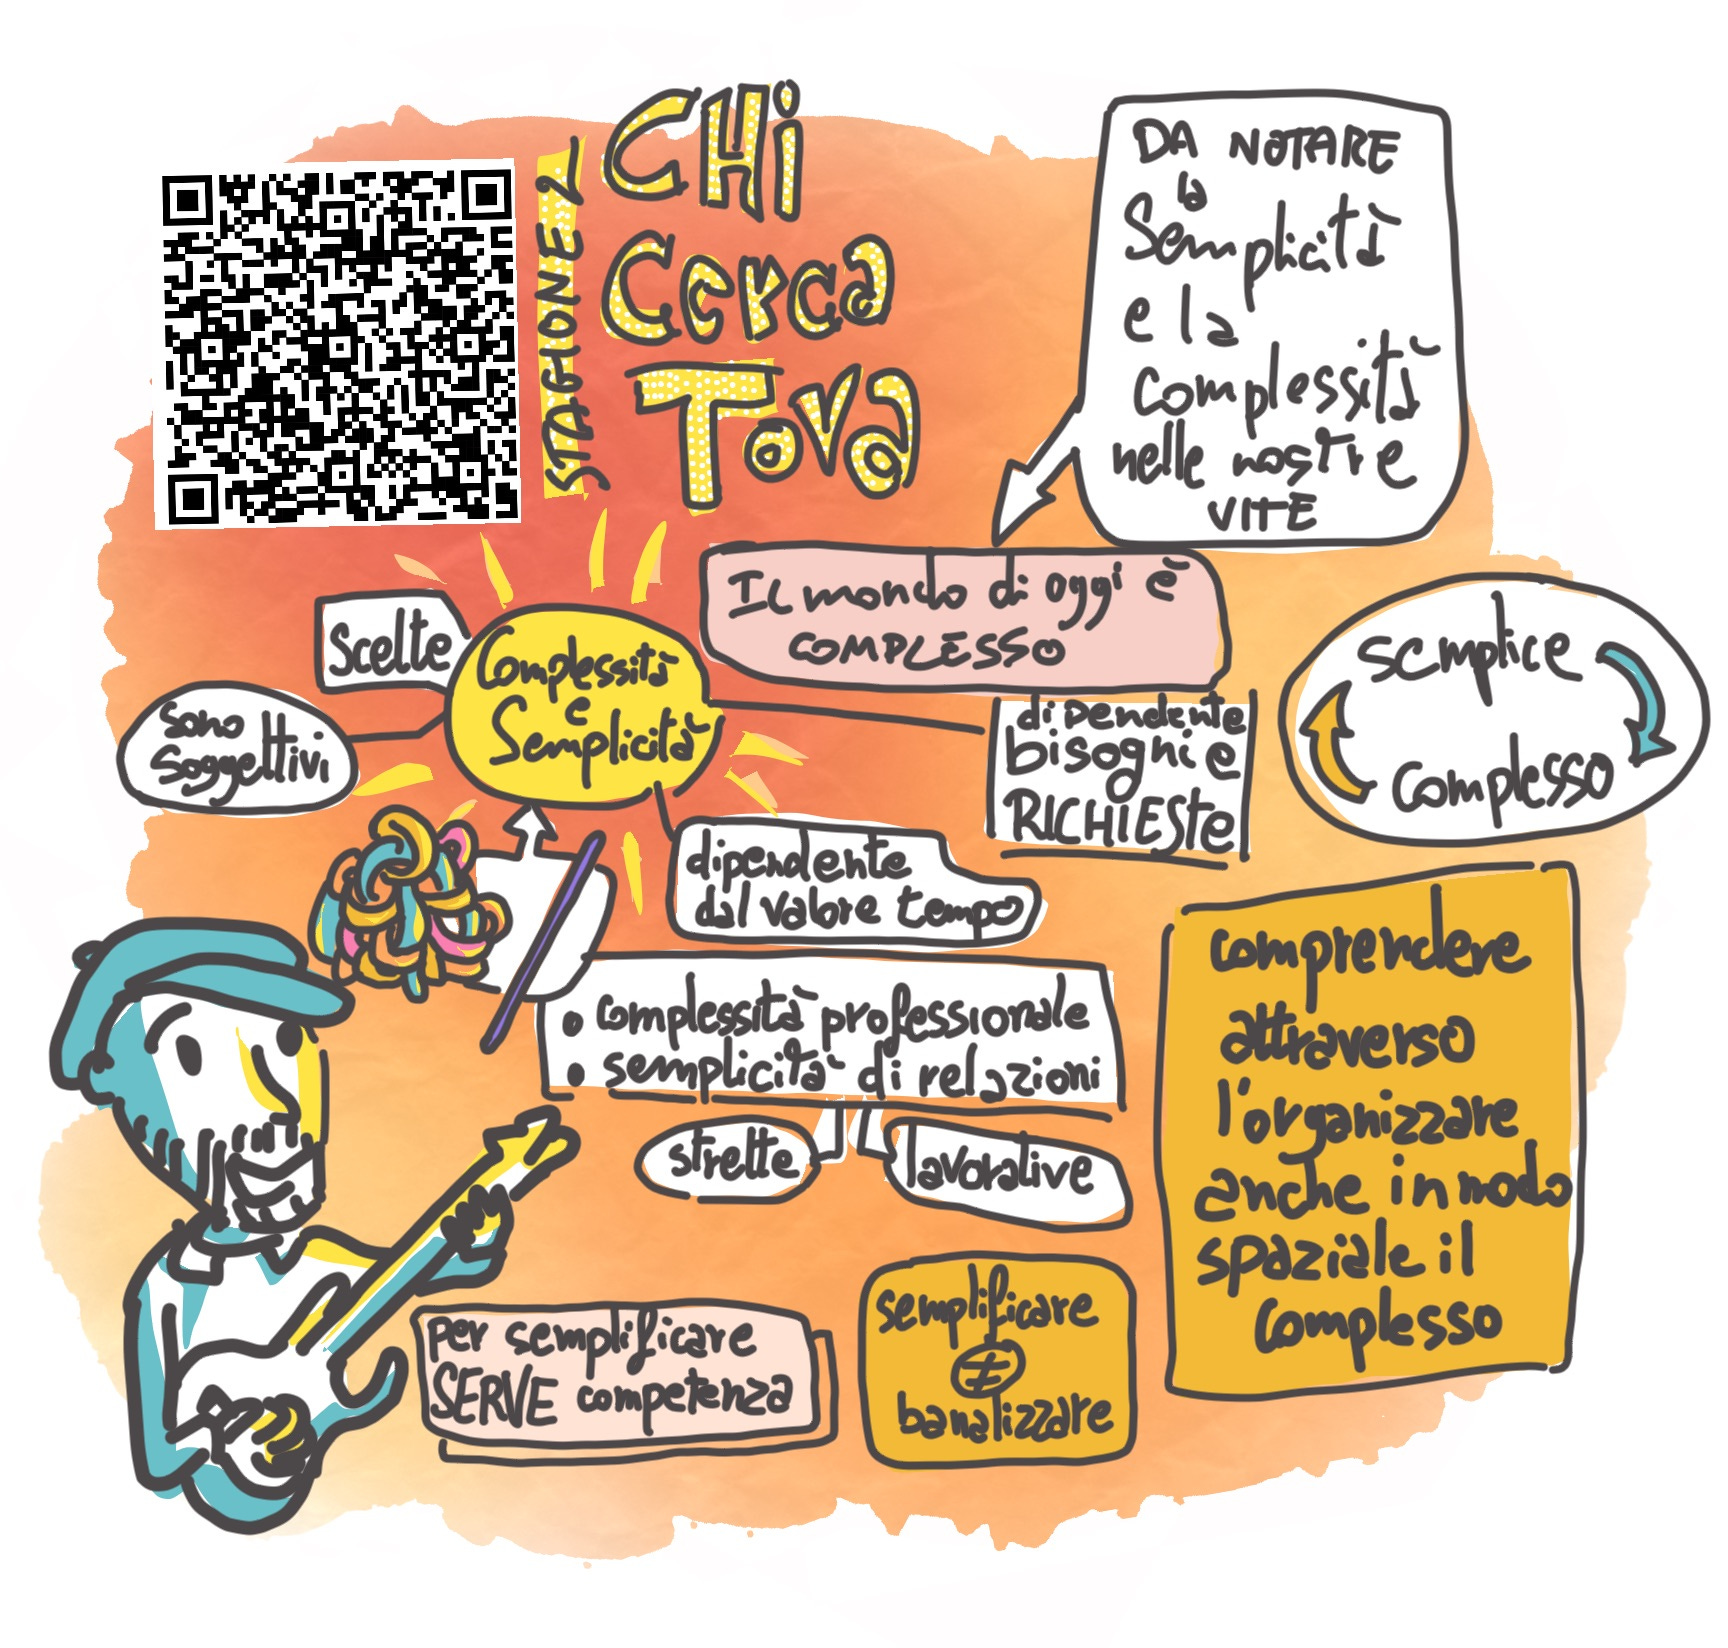 STAGIONE 2
CHi
Cerca
Tova
DA NOTARE
la
Semplicità
e la
complessità
nelle nostre
VITE
Scelte
Complessità
e
Semplicità
IL mondo di oggi è
COMPLESSO
sono
soggettivi
dipendente
bisogni e
RICHIESte
semplice
complesso
dipendente
dal valore tempo
• complessità professionale
• semplicità di relazioni
strette
lavorative
comprendere
attraverso
l'organizzare
anche in modo
spaziale il
complesso
per semplificare
SERVE competenza
semplificare
≠
banalizzare